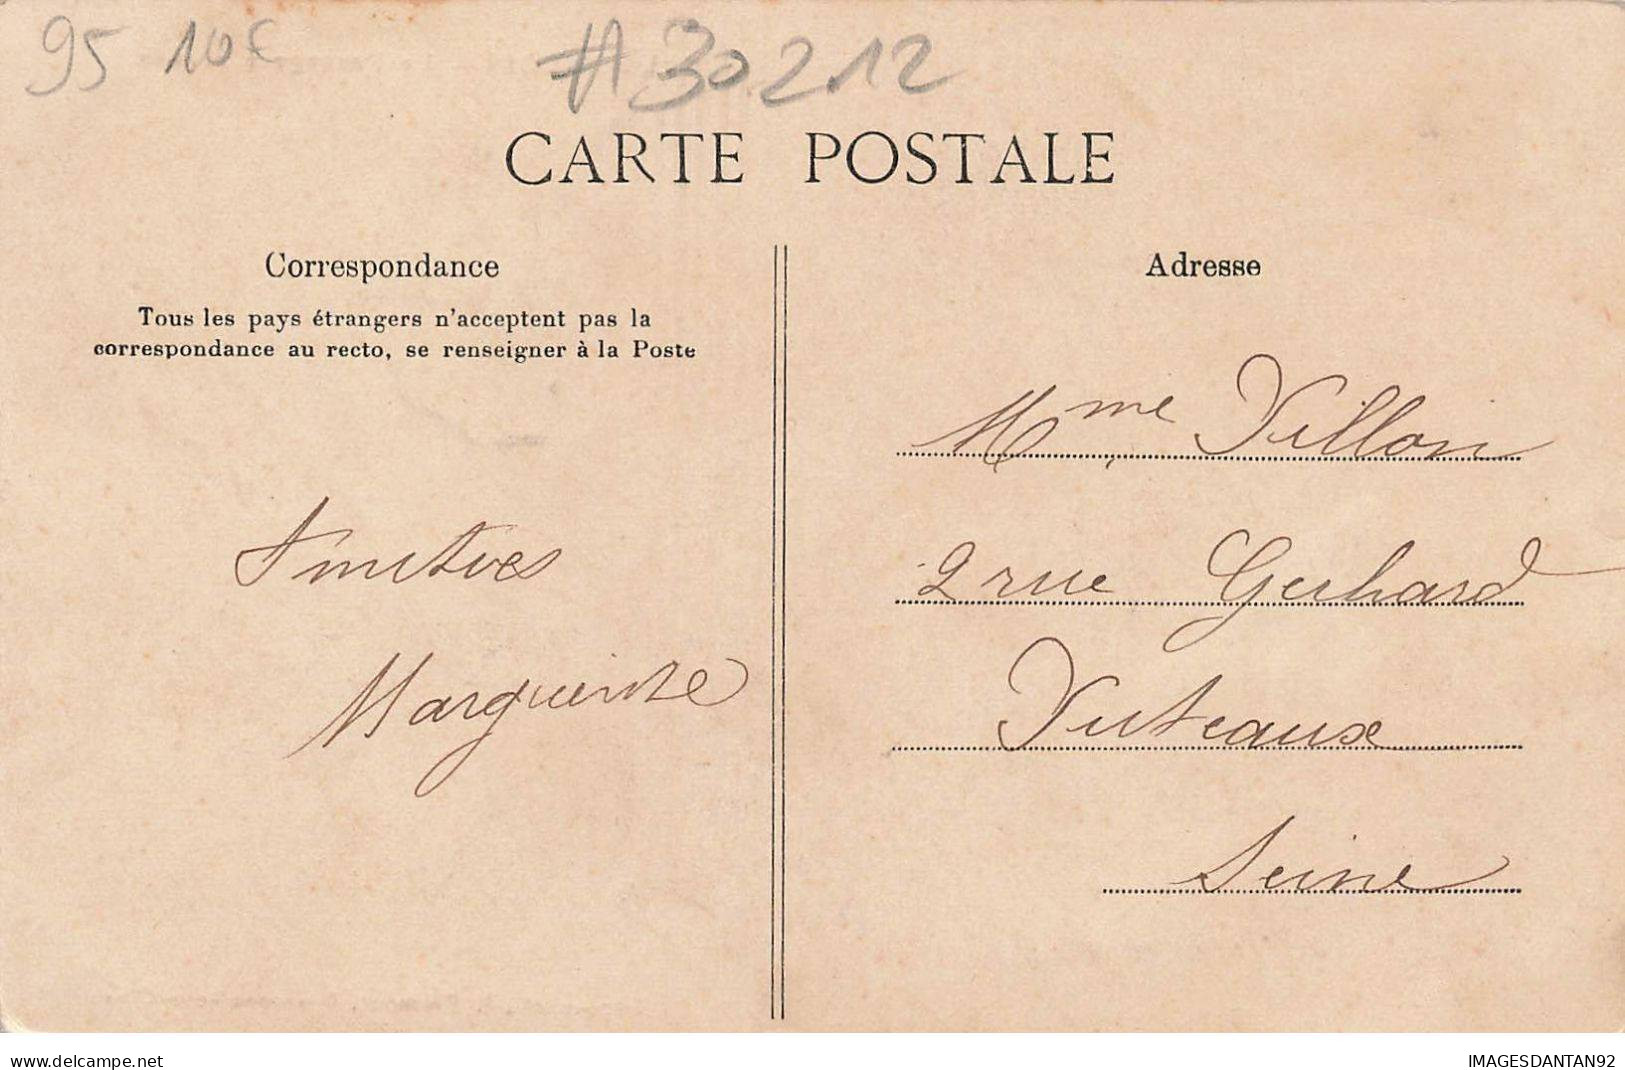 95 10€ #30212
CARTE POSTALE
Correspondance
Tous les pays étrangers n'acceptent pas la
correspondance au recto, se renseigner à la Poste
Amitiés
Marguerite
Adresse
Mme Villon
2 rue Gerhard
Puteaux
Seine
delcampe.net
IMAGESDANTAN92